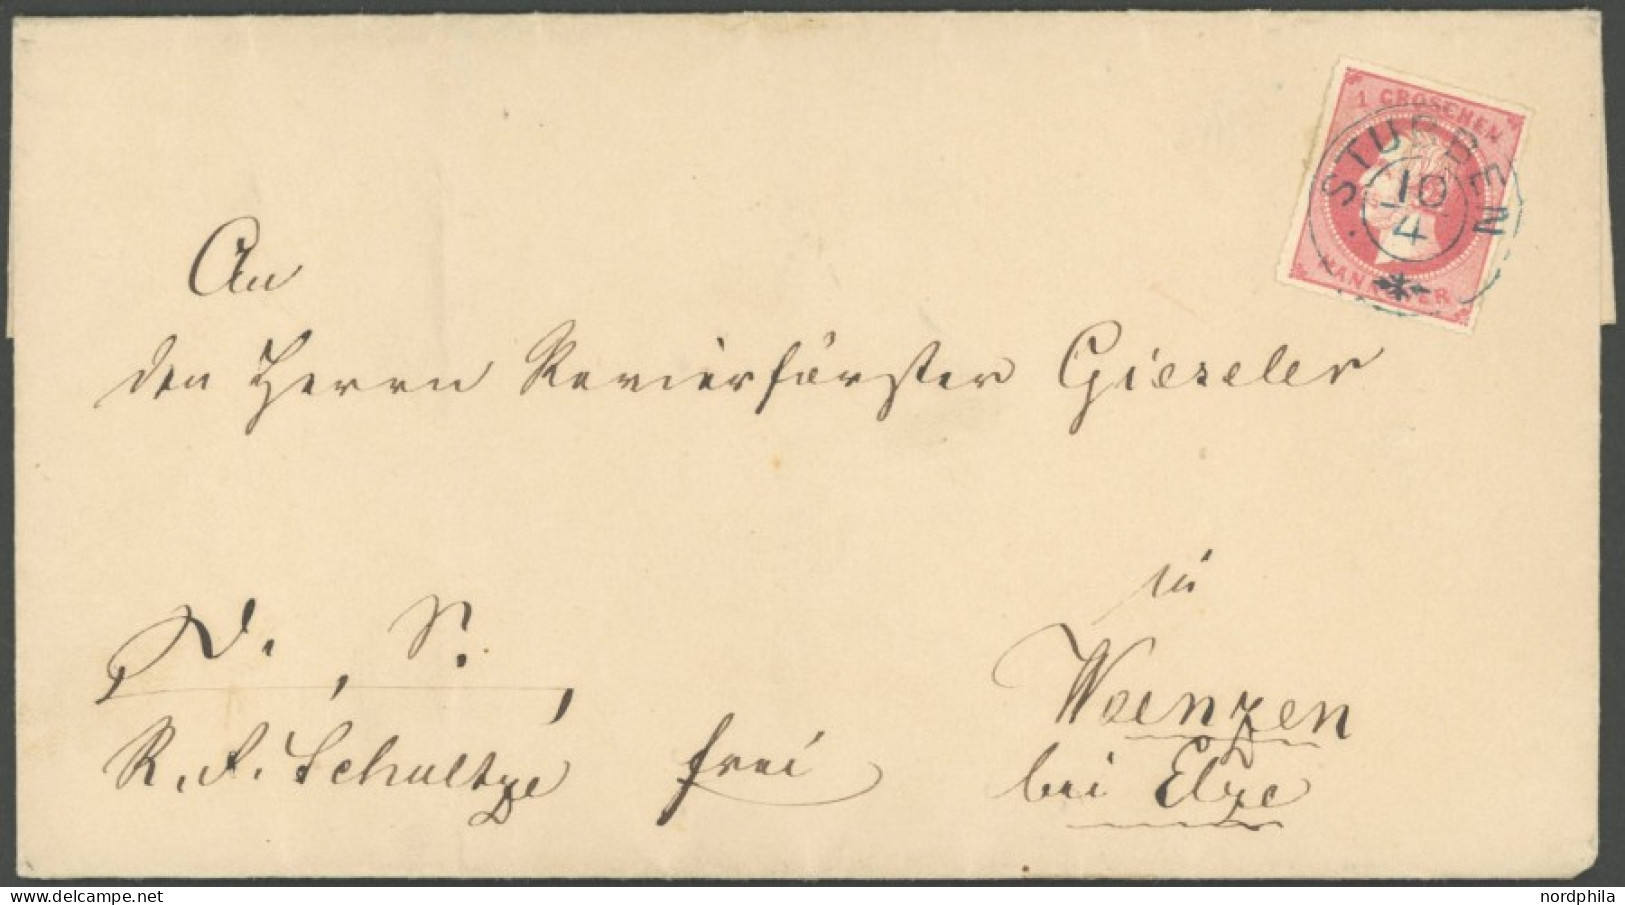 1 GROSCHEN
STUBBEN
10
4
HANNOVER
An
den Herrn Revierförster Gieseler
in
D. S.
Wenzen
R. F. Schultze frei bei Elze
nordphila